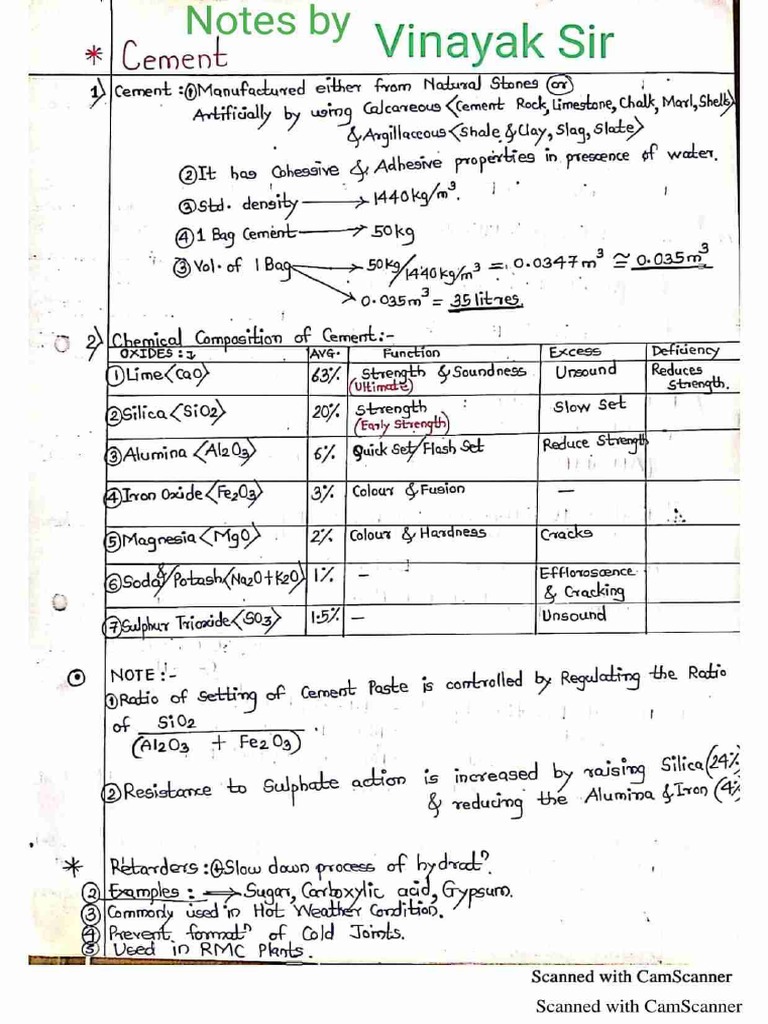 Notes by Vinayak Sir
* Cement
1) Cement : ① Manufactured either from Natural Stones (or)
Artificially by using Calcareous <Cement Rock, Limestone, Chalk, Marl, Shells>
& Argillaceous <Shale & Clay, Slag, Slate>
② It has Cohessive & Adhesive properties in prescence of water.
③ Std. density → 1440 kg/m³.
④ 1 Bag Cement → 50kg
③ Vol. of 1 Bag → 50kg/1440 kg/m³ = 0.0347 m³ ≅ 0.035m³
→ 0.035m³ = 35 litres.
2) Chemical Composition of Cement:-
OXIDES : ↓ AVG. Function Excess Deficiency
① Lime <CaO> 63% Strength & Soundness (Ultimate) Unsound Reduces Strength.
② Silica <SiO2> 20% Strength (Early Strength) Slow Set
③ Alumina <Al2O3> 6% Quick Set/Flash Set Reduce Strength
④ Iron Oxide <Fe2O3> 3% Colour & Fusion —
⑤ Magnesia <MgO> 2% Colour & Hardness Cracks
⑥ Soda & Potash <Na2O+K2O> 1% — Effloroscence & Cracking
⑦ Sulphur Trioxide <SO3> 1.5% — Unsound
NOTE :-
① Ratio of Setting of Cement Paste is controlled by Regulating the Ratio
of SiO2 / (Al2O3 + Fe2O3) .
② Resistance to Sulphate action is increased by raising Silica (24%
& reducing the Alumina & Iron (4%
* Retarders : ① Slow down process of hydratⁿ.
② Examples : → Sugar, Carboxylic acid, Gypsum.
③ Commonly used in Hot Weather Condition.
④ Prevent formatⁿ of Cold Joints.
⑤ Used in RMC Plants.
Scanned with CamScanner
Scanned with CamScanner